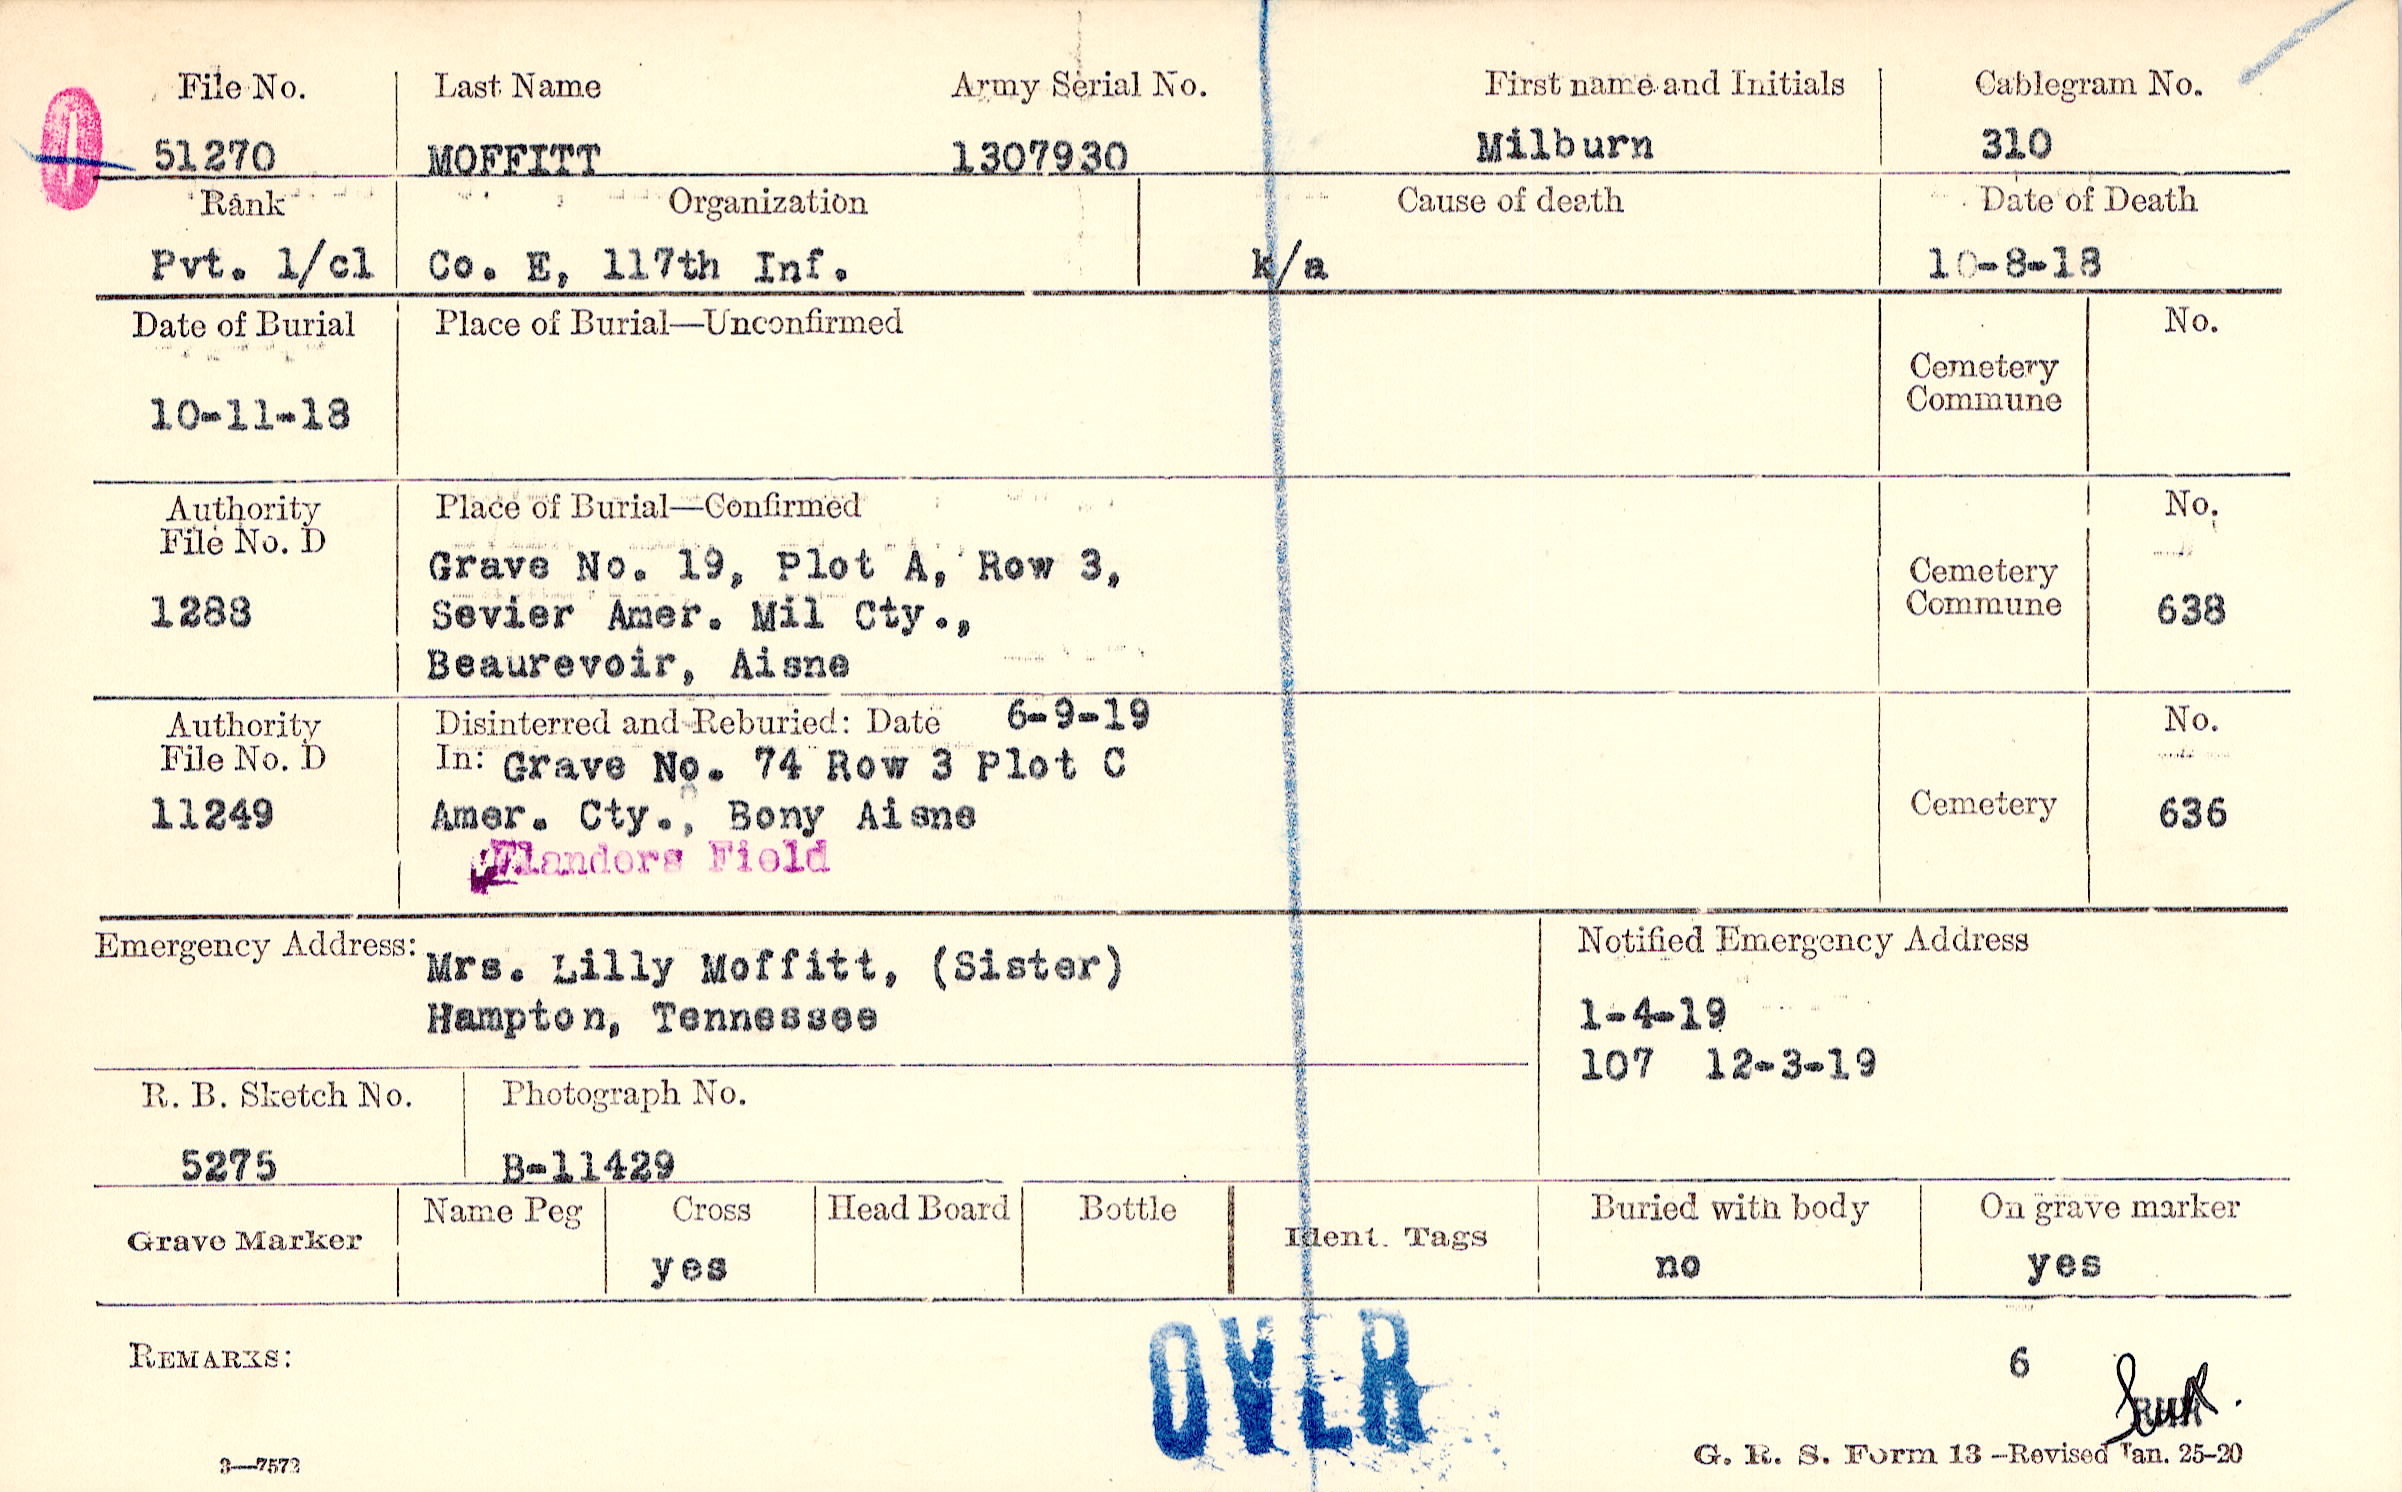 File No. Last Name Army Serial No. First name and Initials Cablegram No.
51270 MOFFITT 1307930 Milburn 310
Rank Organization Cause of death Date of Death
Pvt. 1/cl Co. E, 117th Inf. k/a 10-8-18
Date of Burial Place of Burial—Unconfirmed No.
Cemetery
Commune
10-11-18
Authority Place of Burial—Confirmed No.
File No. D
Grave No. 19, Plot A, Row 3,
Cemetery
1288 Sevier Amer. Mil Cty., Commune 638
Beaurevoir, Aisne
Authority Disinterred and Reburied: Date 6-9-19 No.
File No. D In: Grave No. 74 Row 3 Plot C
11249 Amer. Cty., Bony Aisne Cemetery 636
Flanders Field
Emergency Address: Mrs. Lilly Moffitt, (Sister) Notified Emergency Address
Hampton, Tennessee 1-4-19
107 12-3-19
R. B. Sketch No. Photograph No.
5275 B-11429
Name Peg Cross Head Board Bottle Buried with body On grave marker
Grave Marker Ident. Tags
yes no yes
REMARKS: 6
OVER
3—7572 G. R. S. Form 13—Revised Jan. 25-20